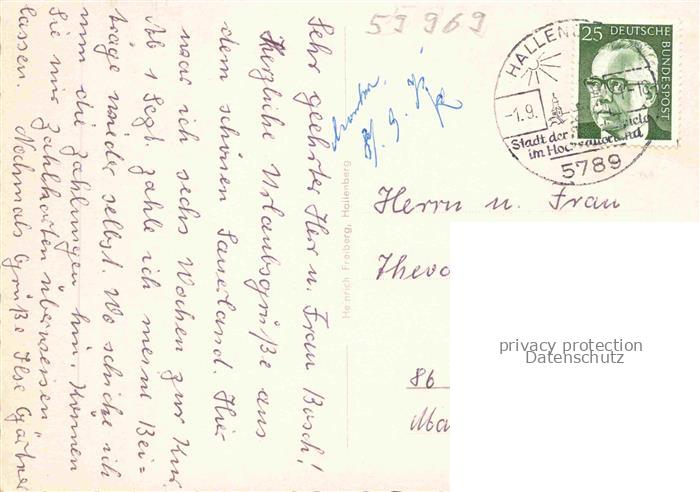 Sehr geehrter Herr u. Frau Bosch!
Herzliche Urlaubsgrüße aus
dem schönen Sauerland. Hier
war ich sechs Wochen zur Kur.
Ab 1 Sept. zahle ich meine Bei=
träge wieder selbst. Wo schicke ich
nun die Zahlungen hin. Können
Sie mir Zahlkarten überweisen
lassen. Nochmals Grüße Ilse Gärtner
59969
Heinrich Freiberg, Hallenberg
HALLEN
-1.9.
Stadt der
im Hochsauerland
5789
25 DEUTSCHE
BUNDESPOST
Herrn u. Frau
Theod
86
privacy protection
Datenschutz